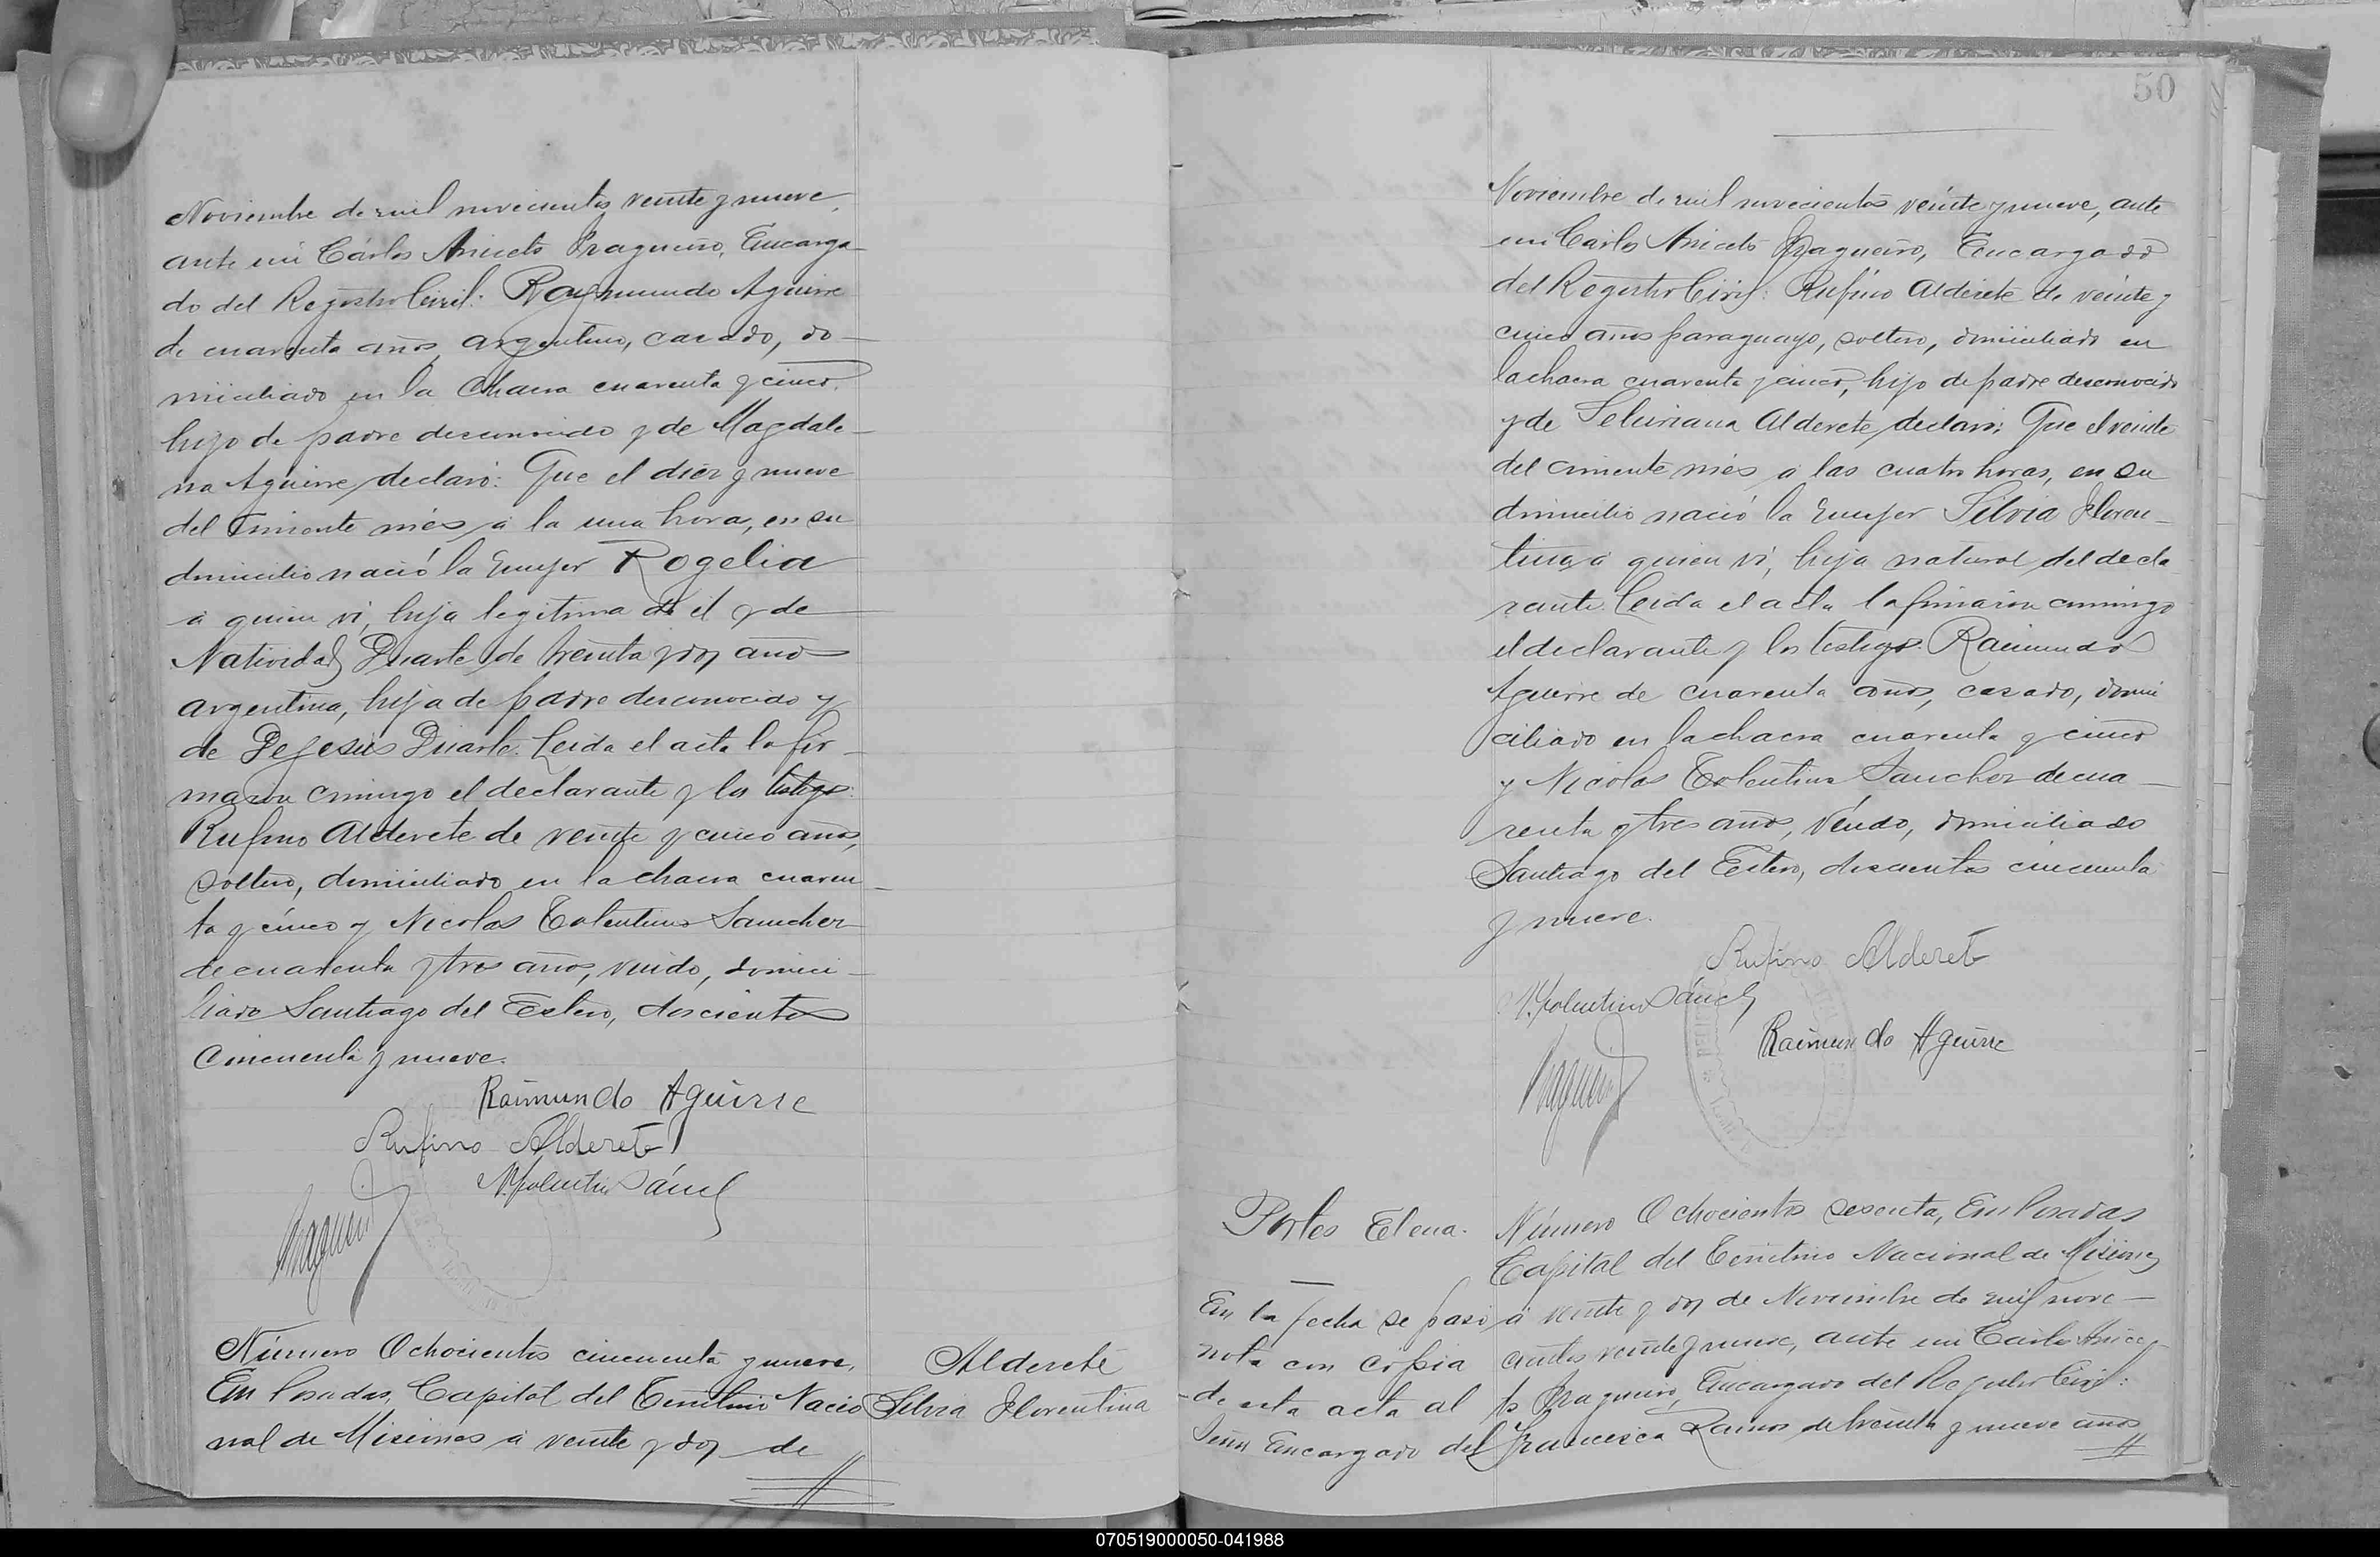 Noviembre de mil novecientos veinte y nueve,
ante mi Cárlos Aniceto Fragueiro, Encarga-
do del Registro Civil: Raymundo Aguirre
de cuarenta años, argentino, casado, do-
miciliado en la Chacra cuarenta y cinco,
hijo de padre desconocido y de Magdale-
na Aguirre, declaró: Que el diez y nueve
del corriente més a la una hora, en su
domicilio nació la mujer Rogelia
a quien ví, hija legítima de él y de
Natividad Duarte de treinta y dos años
argentina, hija de padre desconocido y
de Dejesús Duarte. Leída el acta la fir-
maron conmigo el declarante y los testigos:
Rufino Alderete de veinte y cinco años,
soltero, domiciliado en la chacra cuaren-
ta y cinco y Nicolas Tolentino Sanchez
de cuarenta y tres años, viudo, domici-
liado Santiago del Estero, doscientos
cincuenta y nueve.
Raimundo Aguirre
Rufino Alderete
N. Tolentino Sánch
Número Ochocientos cincuenta y nueve,
En Posadas, Capital del Territorio Nacio
nal de Misiones a veinte y dos de
Alderete
Silvia Florentina
50
Noviembre de mil novecientos veinte y nueve, ante
mi Carlos Aniceto Fragueiro, Encargado
del Registro Civil: Rufino Alderete de veinte y
cinco años paraguayo, soltero, domiciliado en
la chacra cuarenta y cinco, hijo de padre desconocido
y de Alderete declaró: Que el veinte
del corriente més a las cuatro horas, en su
domicilio nació la mujer Silvia Floren-
tina, a quien ví, hija natural del decla
rante. Leida el acta la firmaron conmigo
el declarante y los testigos: Raimundo
Aguirre de cuarenta años, casado, domi
ciliado en la chacra cuarenta y cinco
y Nicolas Tolentino Sanchez de cua-
renta y tres años, viudo, domiciliado
Santiago del Estero, doscientos cincuenta
y nueve.
Rufino Alderete
N. Tolentino Sánch
Raimundo Aguirre
Portes Elena.
En la fecha se pasó
nota con copia
de esta acta al
Señor Encargado del
Número Ochocientos sesenta, En Posadas
Capital del Territorio Nacional de Misiones
a veinte y dos de Noviembre de mil nove-
cientos veinte y nueve, ante mi Carlos Anice
to Fragueiro, Encargado del Registro Civil:
Francisca Ramos de treinta y nueve años
070519000050-041988